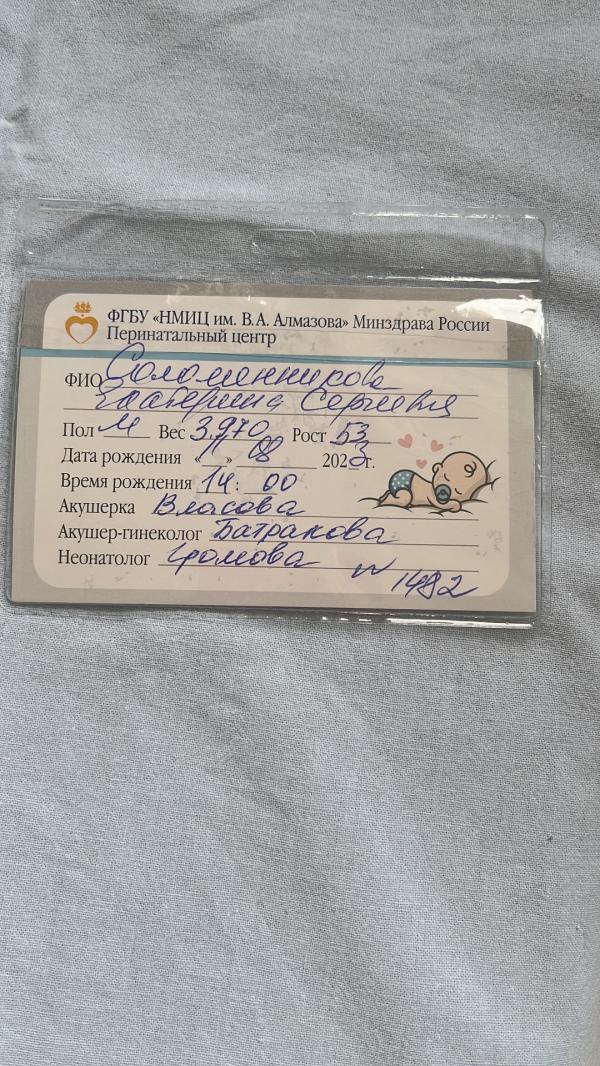 ФГБУ «НМИЦ им. В.А. Алмазова» Минздрава России
Перинатальный центр
ФИО Соломенникова
Екатерина Сергеевна
Пол М Вес 3.970 Рост 53
Дата рождения «11» 08 2023г.
Время рождения 14: 00
Акушерка Власова
Акушер-гинеколог Батракова
Неонатолог Громова
N 1482